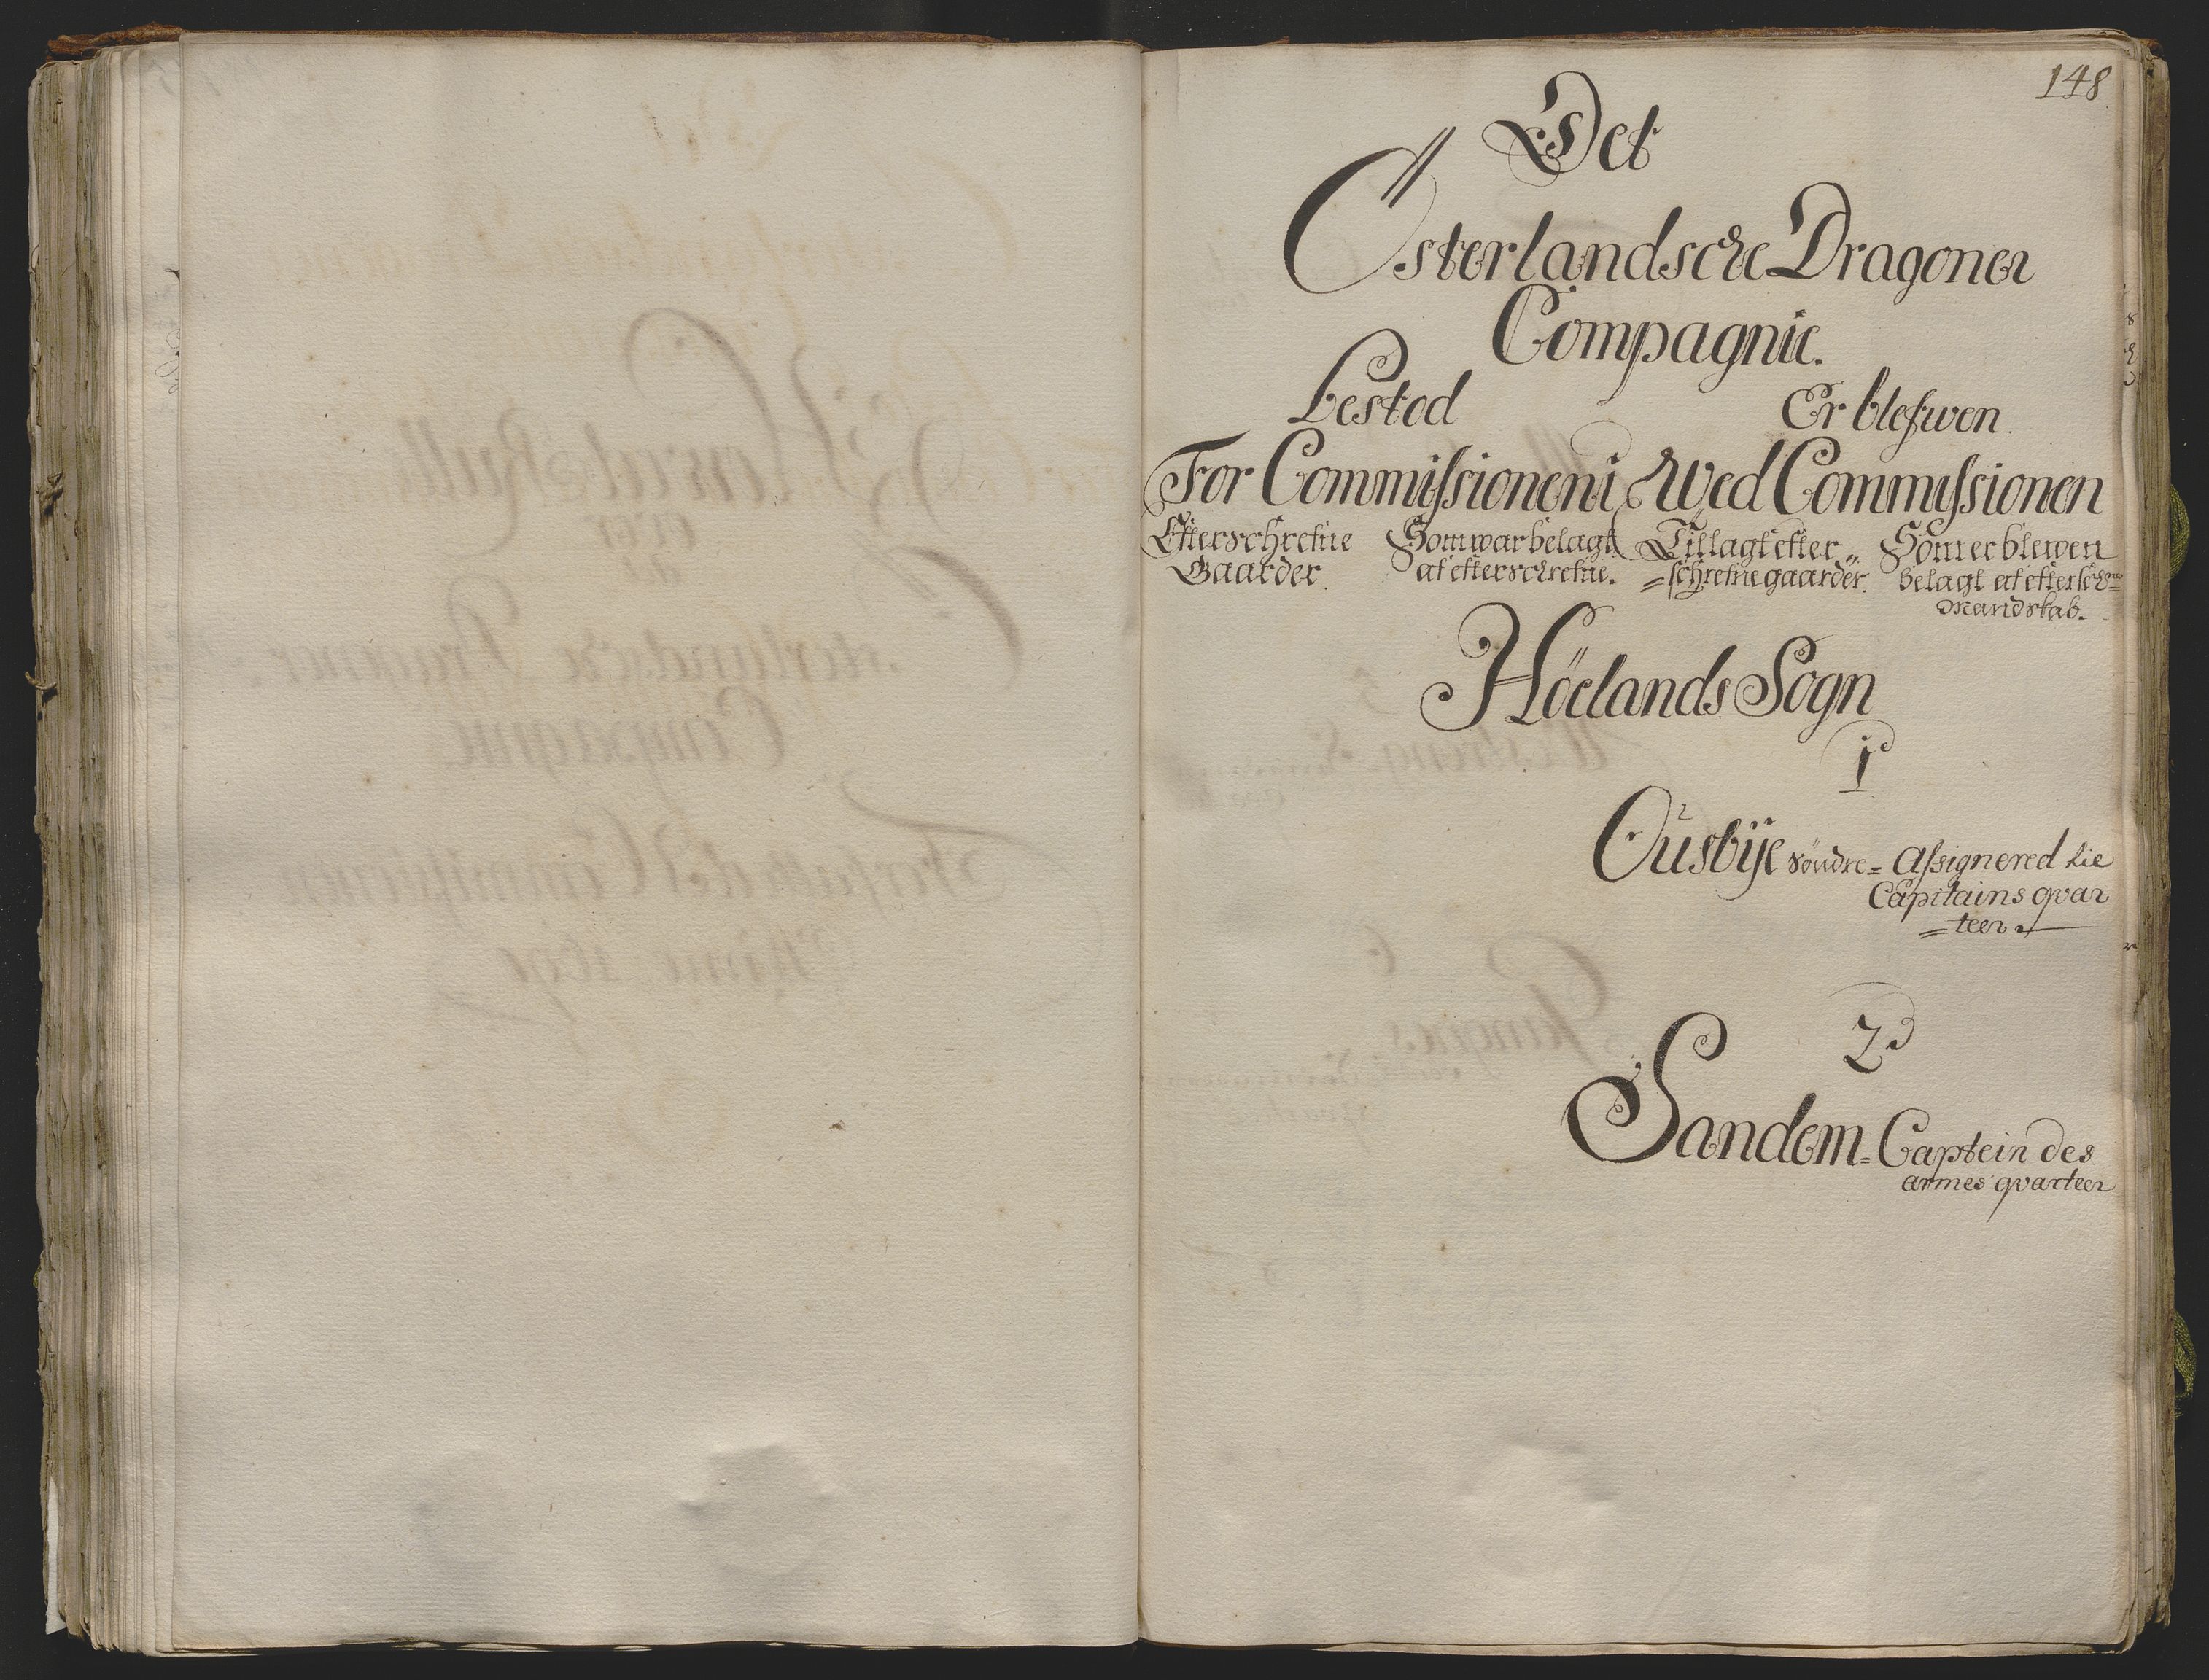 148
Det
Österlandsche Dragoner
Compagnie.
Bestod
Er blefwen.
For Commissionen i
Wed Commissionen
Efterschrefne
Gaarder.
Som war belagt
af efterschrefne.
Tillagt efter„
=schrefne gaarder.
Som er blewen
belagt af eftersch=
Mandskab.
Höelands Sogn
1
Ousbÿe söndre = Assignered lie
Capitains qvar
=teer.
2
Sandem = Captein des
armes qvarteer